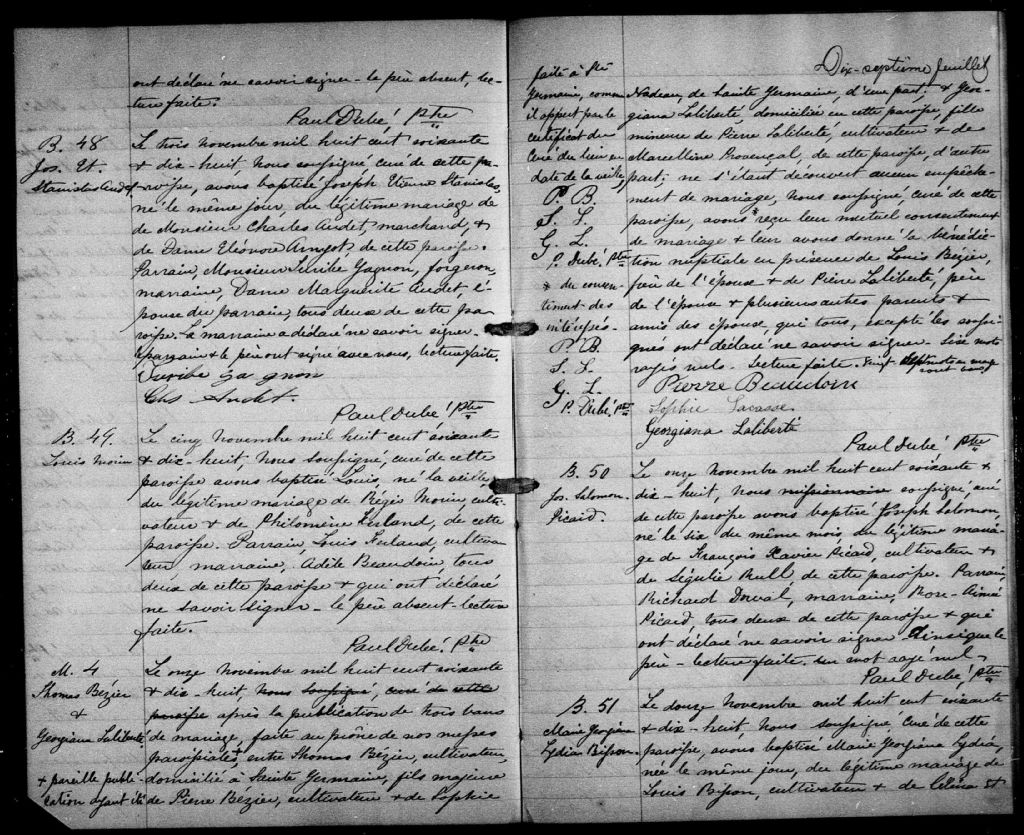 ont déclaré ne savoir signer - le père absent, lec-
ture faite.
Paul Dubé Ptre
B. 48
Jos. Et.
Stanislas Audet
Le trois novembre mil huit cent soixante
& dix-huit, Nous soussigné curé de cette pa-
roisse, avons baptisé Joseph Etienne Stanislas,
né le même jour, du légitime mariage de
de Monsieur Charles Audet, marchand, &
de Dame Eléonore Amyot, de cette paroisse.
Parrain, Monsieur Gagnon, forgeron,
marraine, Dame Marguerite Audet, é-
pouse du parrain, tous deux de cette pa-
roisse. La marraine a déclaré ne savoir signer.
Le parrain & le père ont signé avec nous, lecture faite.
gagnon
Chs Audet.
Paul Dubé Ptre
B. 49.
Louis Morin
Le cinq novembre mil huit cent soixante
& dix-huit, Nous soussigné, curé de cette
paroisse avons baptisé Louis, né la veille
du légitime mariage de Régis Morin, culti-
vateur & de Philomène Ferland, de cette
paroisse. Parrain, Louis Ferland, cultiva-
teur, marraine, Adèle Beaudoin, tous
deux de cette paroisse & qui ont déclaré
ne savoir signer - le père absent - lecture
faite.
Paul Dubé, Ptre
M. 4
Thomas Bézier
&
Georgiana Laliberté
Le onze novembre mil huit cent soixante
& dix-huit, Nous soussigné, curé de cette
paroisse après la publication de trois bans
de mariage, faite au prône de nos messes
paroissiales, entre Thomas Bézier, cultivateur,
domicilié à Sainte Germaine, fils majeur
de Pierre Bézier, cultivateur & de Sophie
+ pareille publi-
cation ayant été
Dix-septième feuillet
faite à Ste
Germaine, comme
il appert par le
certificat du
Curé du lieu en
date de la veille,
P. B.
S. L.
G. L.
P. Dubé, Ptre
* du consen-
timent des
intéressés.
P. B.
S. L.
G. L.
P. Dubé, ptre
Nadeau, de Sainte Germaine, d'une part; & Geor-
giana Laliberté, domiciliée en cette paroisse, fille
mineure de Pierre Laliberté, cultivateur & de
Marcelline Provençal, de cette paroisse, d'autre
part; ne s'étant découvert aucun empêche-
ment de mariage, Nous soussigné, curé de cette
paroisse, avons * reçu leur mutuel consentement
de mariage & leur avons donné la bénédic-
tion nuptiale en présence de Louis Bézier,
frère de l'époux & de Pierre Laliberté, père
de l'épouse & plusieurs autres parents &
amis des époux, qui tous, excepté les soussi-
gnés ont déclaré ne savoir signer. Six mots
rayés nuls. Lecture faite. Vingt mots en marge
sont
Pierre Beaudoin
Sophie Lacasse
Georgiana Laliberté
Paul Dubé Ptre
B. 50
Jos. Salomon
Picard.
Le onze novembre mil huit cent soixante &
dix-huit, Nous missionnaire soussigné, curé
de cette paroisse avons baptisé Joseph Salomon,
né le six du même mois, du légitime maria-
ge de François Xavier Picard, cultivateur &
de Ségulie de cette paroisse. Parrain,
Richard Dorval, marraine, Rose-Aimé
Picard, tous deux de cette paroisse & qui
ont déclaré ne savoir signer ainsi que le
père - lecture faite. Un mot rayé nul.
Paul Dubé, Ptre
B. 51
Marie Georgiana
Lydia Bisson.
Le douze novembre mil huit cent soixante
& dix-huit, Nous soussigné, Curé de cette
paroisse, avons baptisé Marie Georgiana Lydia,
née le même jour, du légitime mariage de
Louis Bisson, cultivateur & de Célina